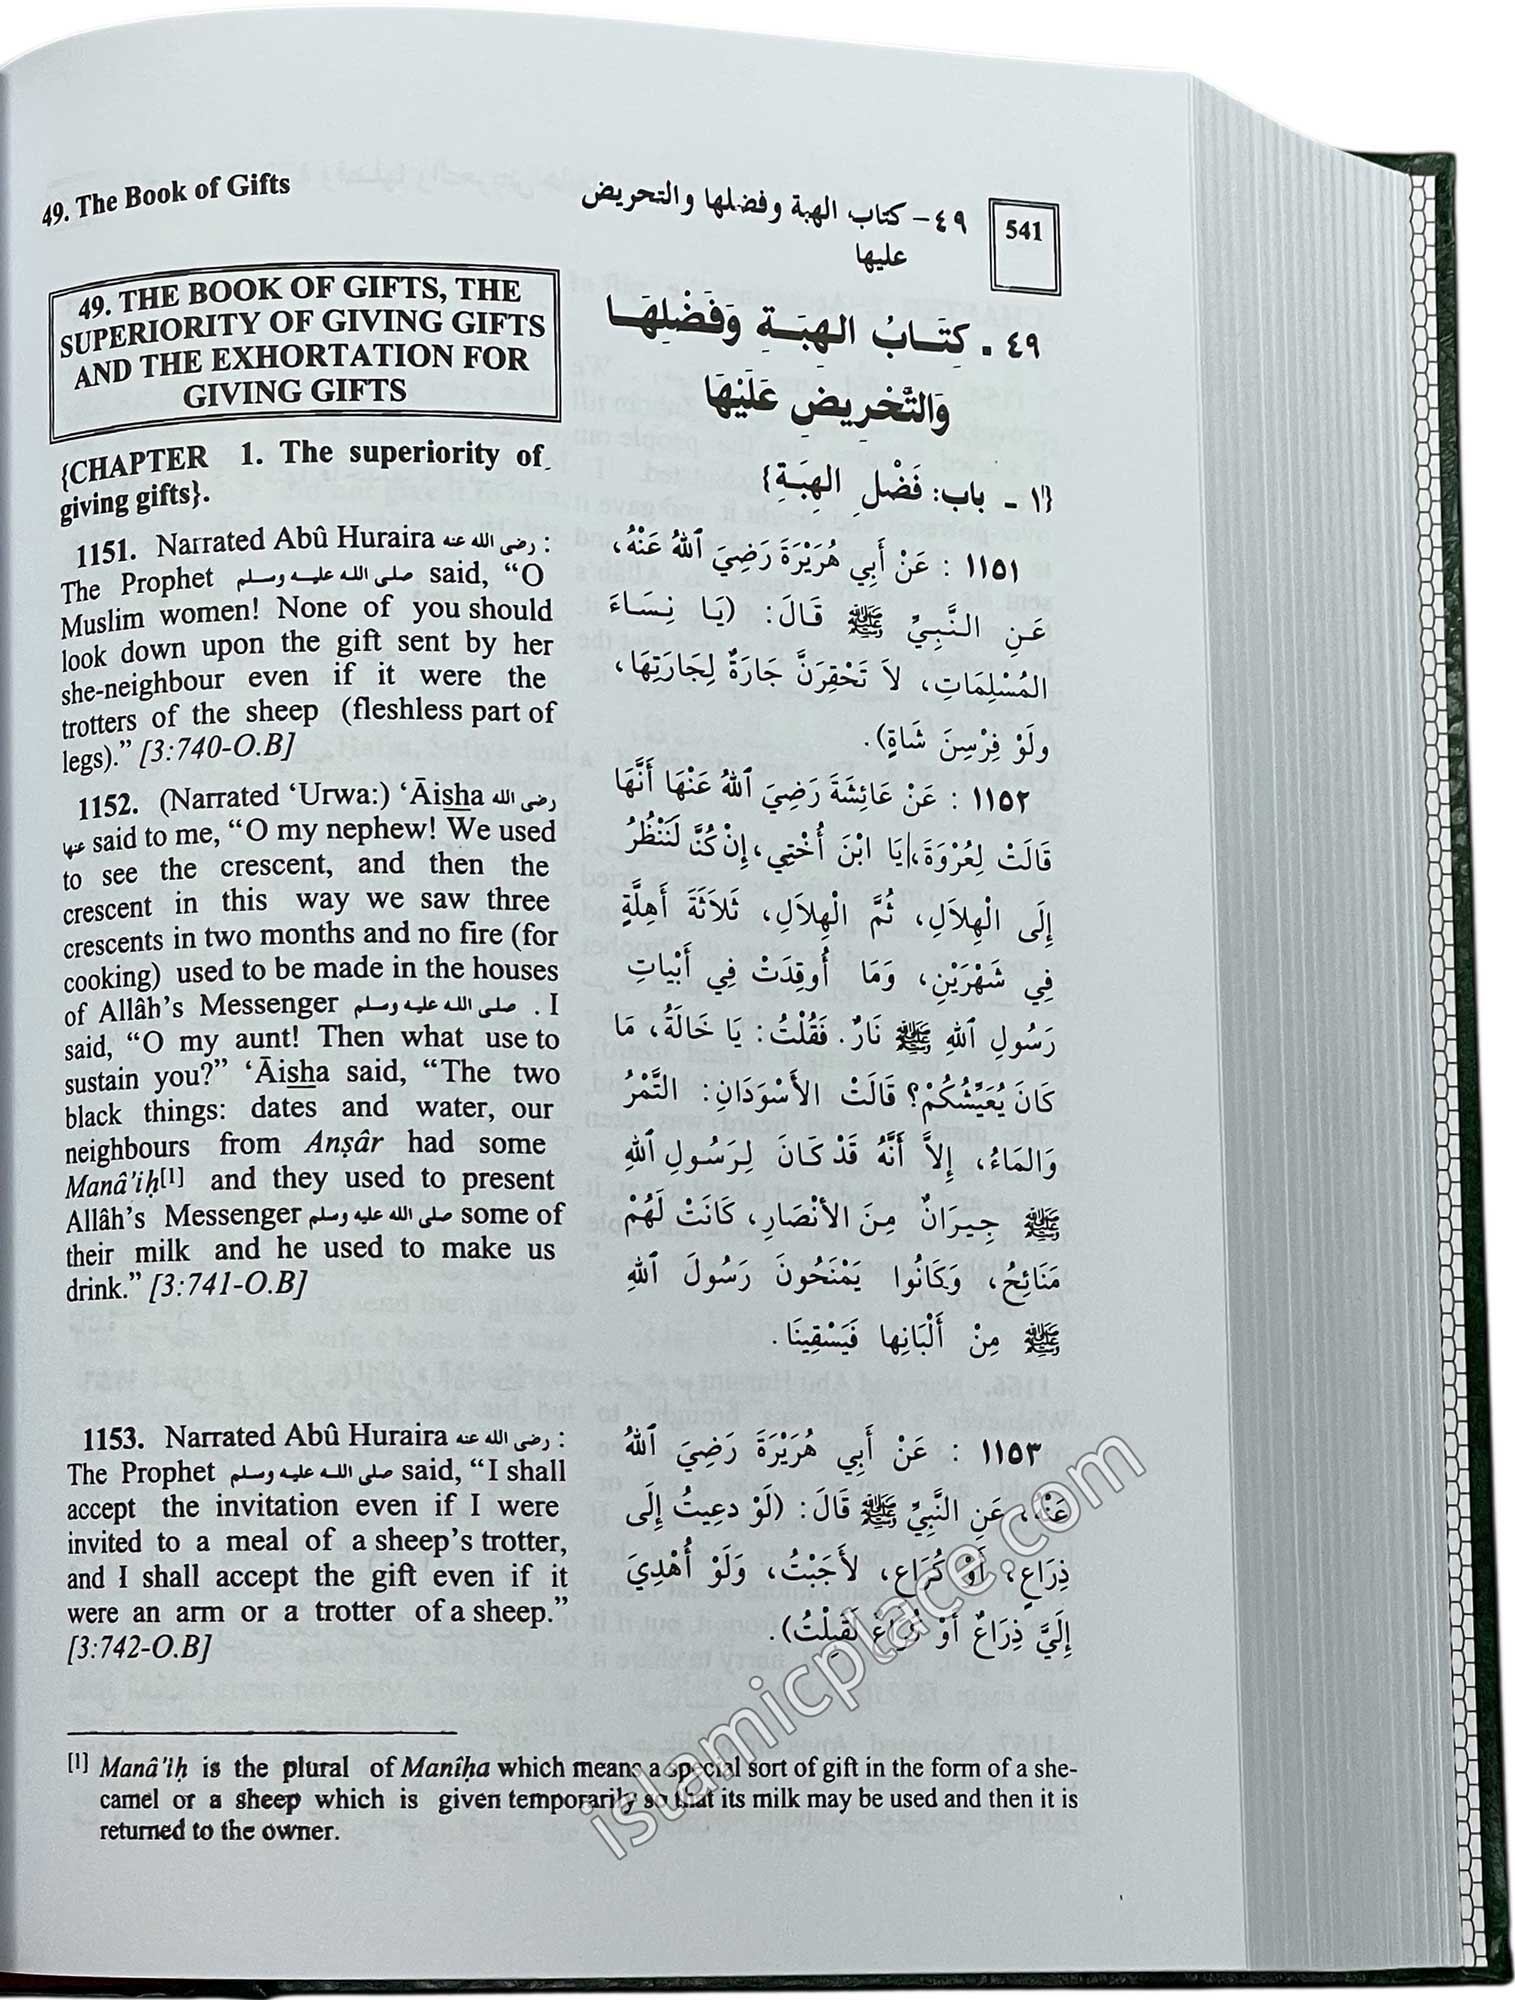 49. The Book of Gifts
٤٩- كتاب الهبة وفضلها والتحريض
عليها
541
49. THE BOOK OF GIFTS, THE
SUPERIORITY OF GIVING GIFTS
AND THE EXHORTATION FOR
GIVING GIFTS
{CHAPTER 1. The superiority of
giving gifts}.
1151. Narrated Abû Huraira رضى الله عنه :
The Prophet صلى الله عليه وسلم said, “O
Muslim women! None of you should
look down upon the gift sent by her
she-neighbour even if it were the
trotters of the sheep (fleshless part of
legs).” [3:740-O.B]
1152. (Narrated ‘Urwa:) ‘Āisha رضى الله
عنها said to me, “O my nephew! We used
to see the crescent, and then the
crescent in this way we saw three
crescents in two months and no fire (for
cooking) used to be made in the houses
of Allâh’s Messenger صلى الله عليه وسلم . I
said, “O my aunt! Then what use to
sustain you?” ‘Āisha said, “The two
black things: dates and water, our
neighbours from Anṣâr had some
Manâ’iḥ[1] and they used to present
Allâh’s Messenger صلى الله عليه وسلم some of
their milk and he used to make us
drink.” [3:741-O.B]
1153. Narrated Abû Huraira رضى الله عنه :
The Prophet صلى الله عليه وسلم said, “I shall
accept the invitation even if I were
invited to a meal of a sheep’s trotter,
and I shall accept the gift even if it
were an arm or a trotter of a sheep.”
[3:742-O.B]
٤٩ . كِتَـابُ الهِبَـةِ وَفَضْلِهَـا
وَالتَّحْرِيضِ عَلَيْهَا
{١ - باب: فَضْلِ الهِبَةِ}
١١٥١ : عَنْ أَبِي هُرَيْرَةَ رَضِيَ ٱللهُ عَنْهُ،
عَنِ النَّبِيِّ ﷺ قَالَ: (يَا نِسَاءَ
المُسْلِمَاتِ، لاَ تَحْقِرَنَّ جَارَةٌ لِجَارَتِهَا،
ولَوْ فِرْسِنَ شَاةٍ).
١١٥٢ : عَنْ عَائِشَةَ رَضِيَ ٱللهُ عَنْهَا أَنَّهَا
قَالَتْ لِعُرْوَةَ، يَا ابْنَ أُخْتِي، إِنْ كُنَّا لَنَنْظُرُ
إِلَى الْهِلاَلِ، ثُمَّ الْهِلاَلِ، ثَلاَثَةَ أَهِلَّةٍ
فِي شَهْرَيْنِ، وَمَا أُوقِدَتْ فِي أَبْيَاتِ
رَسُولِ ٱللهِ ﷺ نَارٌ. فَقُلْتُ: يَا خَالَةُ، مَا
كَانَ يُعَيِّشُكُمْ؟ قَالَتْ الأَسْوَدَانِ: التَّمْرُ
وَالمَاءُ، إِلاَّ أَنَّهُ قَدْ كَانَ لِرَسُولِ ٱللهِ
ﷺ جِيرَانٌ مِنَ الأَنْصَارِ، كَانَتْ لَهُمْ
مَنَائِحُ، وَكَانُوا يَمْنَحُونَ رَسُولَ ٱللهِ
ﷺ مِنْ أَلْبَانِها فَيَسْقِينَا.
١١٥٣ : عَنْ أَبِي هُرَيْرَةَ رَضِيَ ٱللهُ
عَنْهُ، عَنِ النَّبِيِّ ﷺ قَالَ: (لَوْ دعِيتُ إِلَى
ذِرَاعٍ، أَوْ كُرَاعٍ، لأَجَبْتُ، وَلَوْ أُهْدِيَ
إِلَيَّ ذِرَاعٌ أَوْ كُرَاعٌ لَقَبِلْتُ).
[1] Manâ’iḥ is the plural of Manîḥa which means a special sort of gift in the form of a she-
camel or a sheep which is given temporarily so that its milk may be used and then it is
returned to the owner.
islamicplace.com